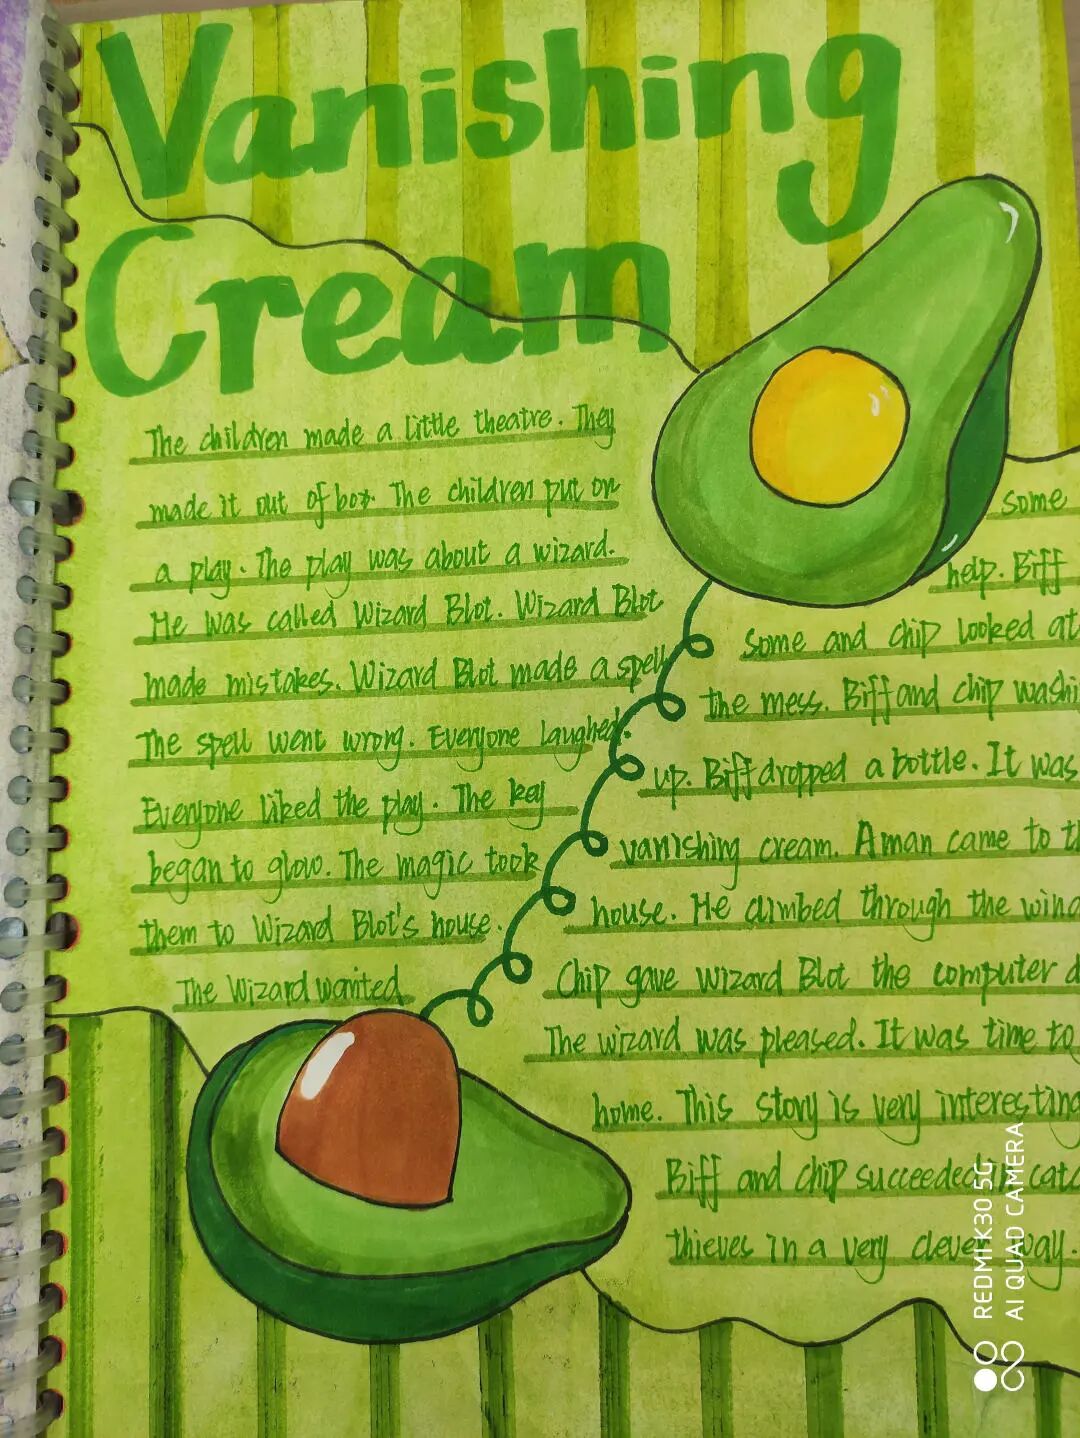 Vanishing
Cream
The children made a little theatre. They
made it out of box. The children put on
a play. The play was about a wizard.
He was called Wizard Blot. Wizard Blot
made mistakes. Wizard Blot made a spell
The spell went wrong. Everyone laughed.
Everyone liked the play. The key
began to glow. The magic took
them to Wizard Blot's house.
The Wizard wanted
some
help. Biff
some and chip looked at
the mess. Biff and chip washi
up. Biff dropped a bottle. It was
vanishing cream. A man came to th
house. He climbed through the wind
Chip gave wizard Blot the computer d
The wizard was pleased. It was time to
home. This story is very interesting
Biff and chip succeeded in catc
thieves in a very clever way.
REDMI K30 5G
AI QUAD CAMERA